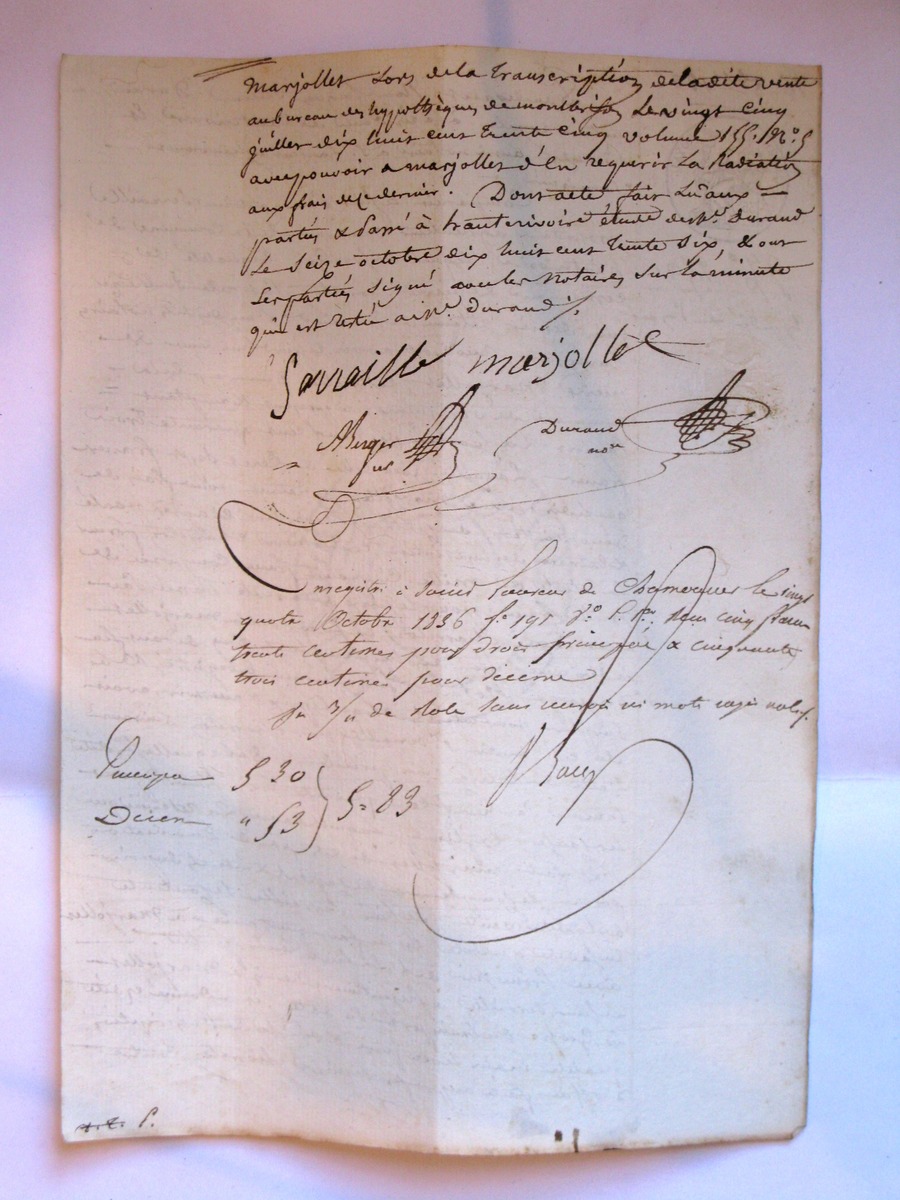 Marjollet Lors de la transcription de la dite vente
au bureau des hypothèques de montbrison Le vingt Cinq
juillet dix huit cent trente cinq volume 155. N.° 5
avec pouvoir a marjollet d'en requerir La Radiation
aux frais de ce dernier. Dont acte fait Lû aux
parties & Passé à hauterivoire étude de M.e Durand
Le Seize octobre dix huit cent trente six, & ont
Les parties signé avec les notaires sur la minute
qui est restée a M.e Durand ./.
Sarraille marjollet
Berger Durand
nore
Enregistré à Saint Laurent de Chamousset le vingt
quatre Octobre 1836 f.o 191 V.o reçu cinq francs
trente centimes pour droit principal & cinquante
trois centimes pour décime
de Role sans renvoi ni mots rayés nuls ./.
Principal 5 30
5 = 83
Décime " 53